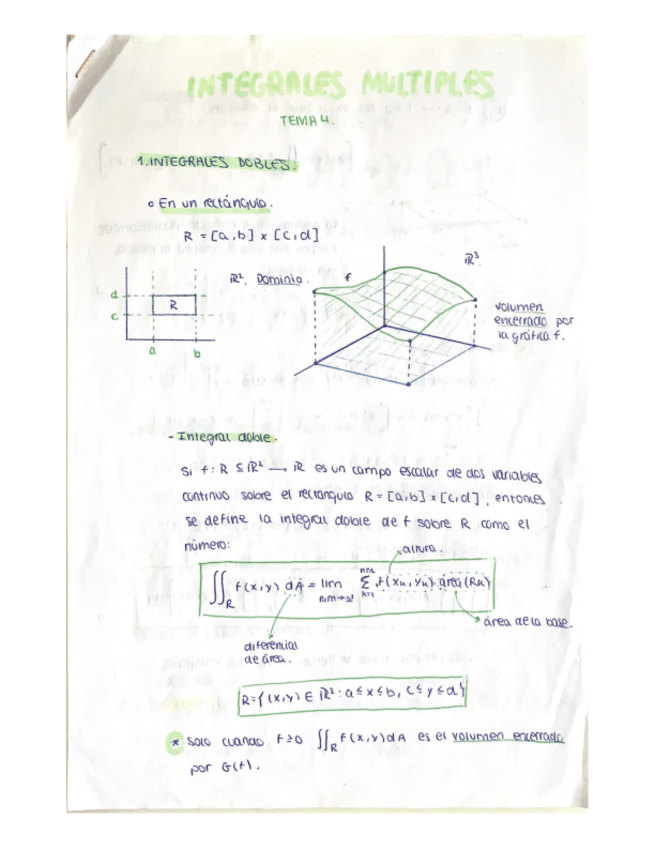 INTEGRALES MULTIPLES
TEMA 4.
1. INTEGRALES DOBLES.
o En un rectángulo.
R = [a,b] x [c,d]
d
c
R
a
b
ℝ². Dominio.
f
ℝ³.
volumen
encerrado por
la gráfica f.
- Integral doble.
Si f: R ⊆ ℝ² → ℝ es un campo escalar de dos variables
continuo sobre el rectángulo R = [a,b] x [c,d], entonces
se define la integral doble de f sobre R como el
número:
altura.
∬_R f(x,y) dA = lim_{n,m→∞} Σ_{k=1} f(xk,yk) área(Rk)
área de la base.
diferencial
de área.
R={(x,y) ∈ ℝ²: a≤x≤b, c≤y≤d}
* Solo cuando f≥0 ∬_R f(x,y)dA es el volumen encerrado
por G(f).